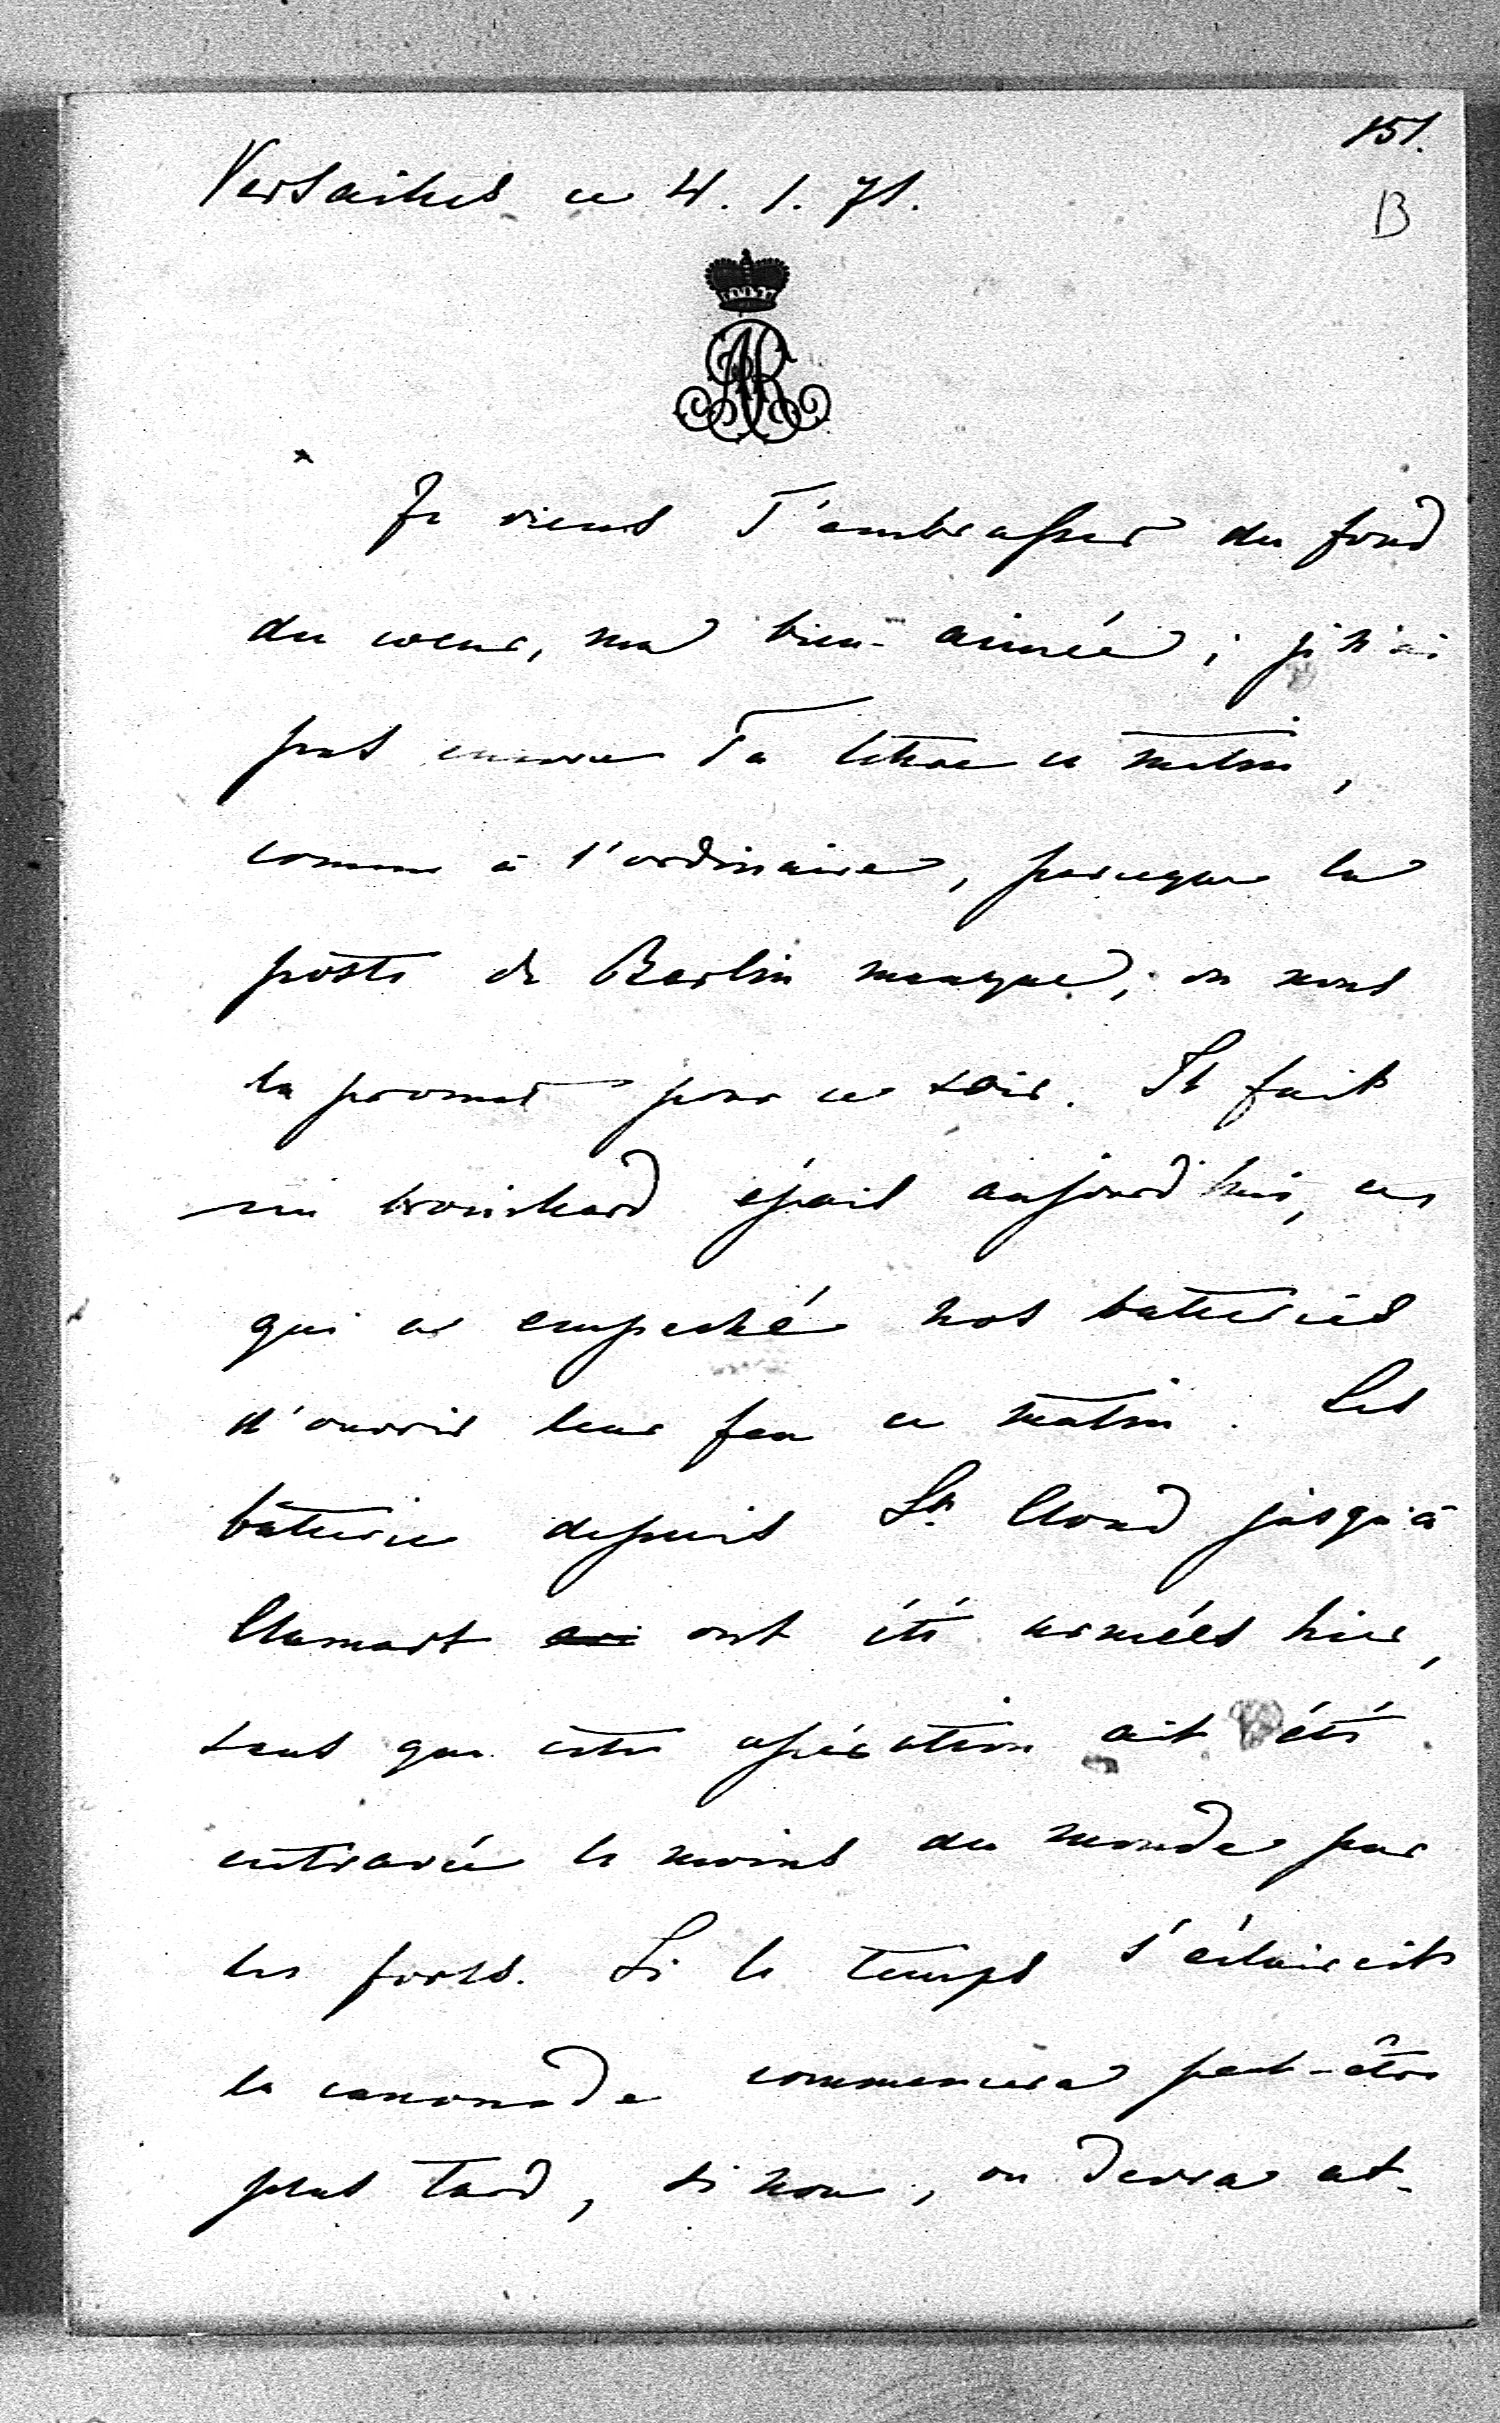 151.
Versailles ce 4. 1. 71.
B
AR
Je viens T'embrasser du fond
du coeur, ma bien-aimée; je n'ai
pas encore Ta lettre ce matin,
comme à l'ordinaire, parceque la
poste de Berlin manque; on nous
la promet pour ce soir. Il fait
un brouillard épais aujourd'hui, ce
qui a empeché nos batteries
d'ouvrir leur feu ce matin. Les
batterie depuis St. Cloud jusqu'à
Clamart ont été armées hier,
sans que cette opération ait été
entravée le moins du monde par
les forts. Si le temps s'éclaircit
la canonade commencera peut-être
plus tard, si non, on devra at-